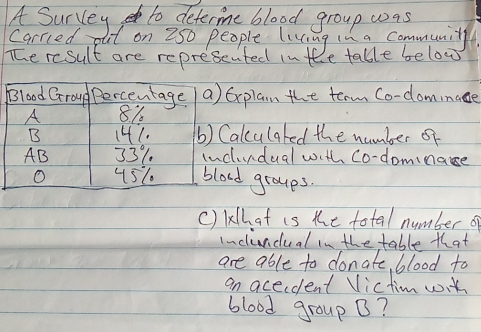 A Survey to determine blood group was
Carried out on 250 people living in a community.
The result are represented in the table below
Blood Group Percentage
A 8%
B 14%
AB 33%
O 45%
a) Explain the term Co-dominace
b) Calculated the number of
indundual with Co-dominance
blood groups.
c) What is the total number of
indundual in the table that
are able to donate blood to
an accident Victim with
blood group B?